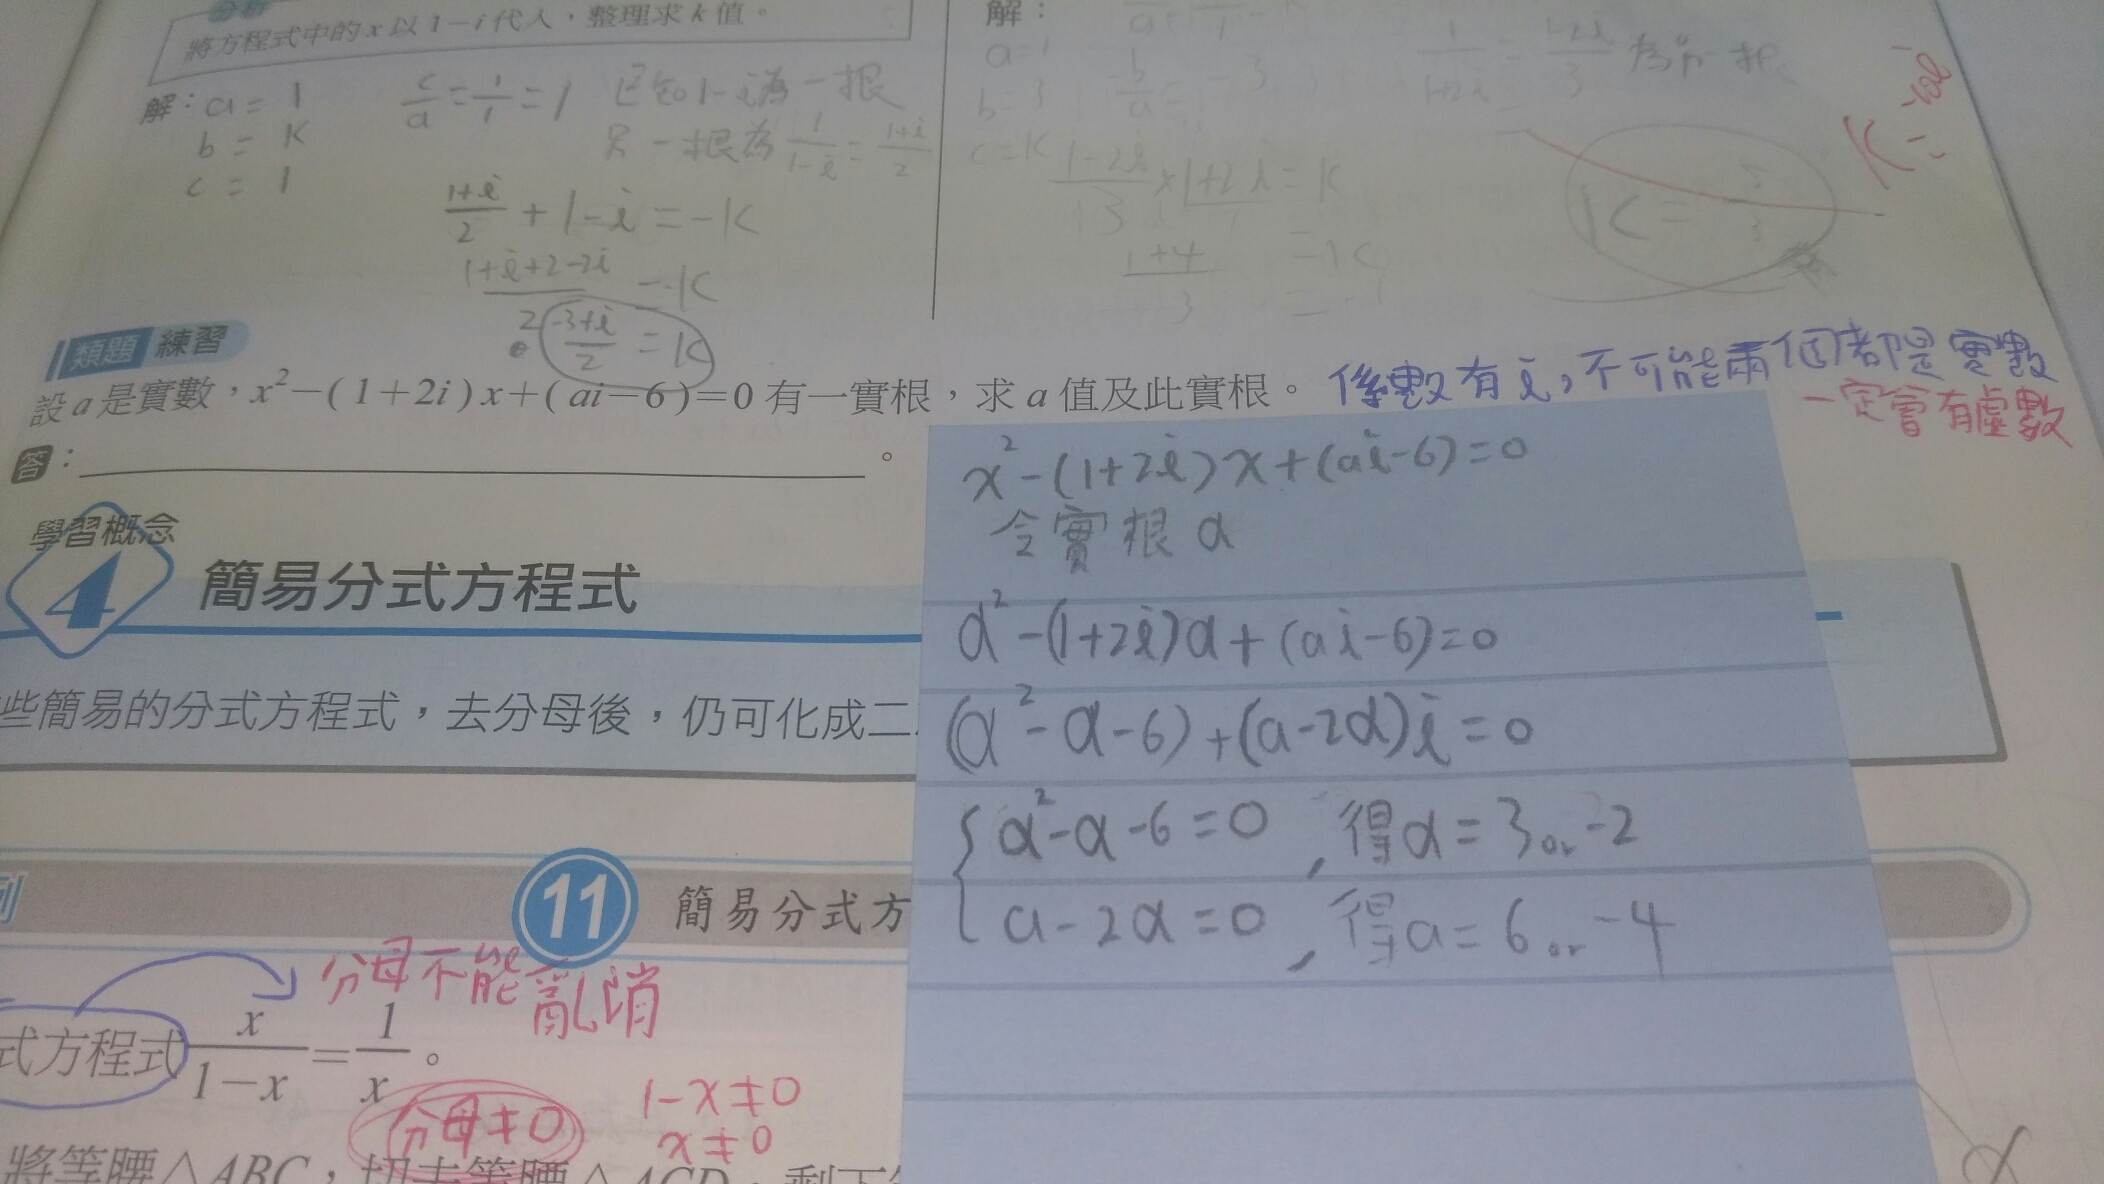 分析
將方程式中的 x 以 1－i 代入，整理求 k 值。
解：a = 1
b = K
c = 1
c/a = 1/1 = 1 已知1-i為一根
另一根為 1/(1-i) = (1+i)/2
(1+i)/2 + 1-i = -K
(1+i+2-2i)/2 = -K
(-3+i)/2 = K
解：
a = 1
b = 3
c = K
-b/a = -3
1/(1+2i) = (1-2i)/3 為另一根
(1-2i)/3 × (1+2i)/1 = K
(1+4)/3 = K
K = 5/3
K =
類題 練習
設 a 是實數，x²－(1＋2i)x＋(ai－6)=0 有一實根，求 a 值及此實根。
係數有i，不可能兩個都是實數
一定會有虛數
答：。
x²-(1+2i)x+(ai-6)=0
令實根α
α²-(1+2i)α+(ai-6)=0
(α²-α-6)+(a-2α)i=0
α²-α-6=0，得α=3 or -2
a-2α=0，得a=6 or -4
學習概念
4 簡易分式方程式
些簡易的分式方程式，去分母後，仍可化成二
例 11 簡易分式方
分母不能亂消
式方程式 x/(1－x) = 1/x。
分母≠0
1-x≠0
x≠0
將等腰△ABC，切去等腰△ACD，剩下